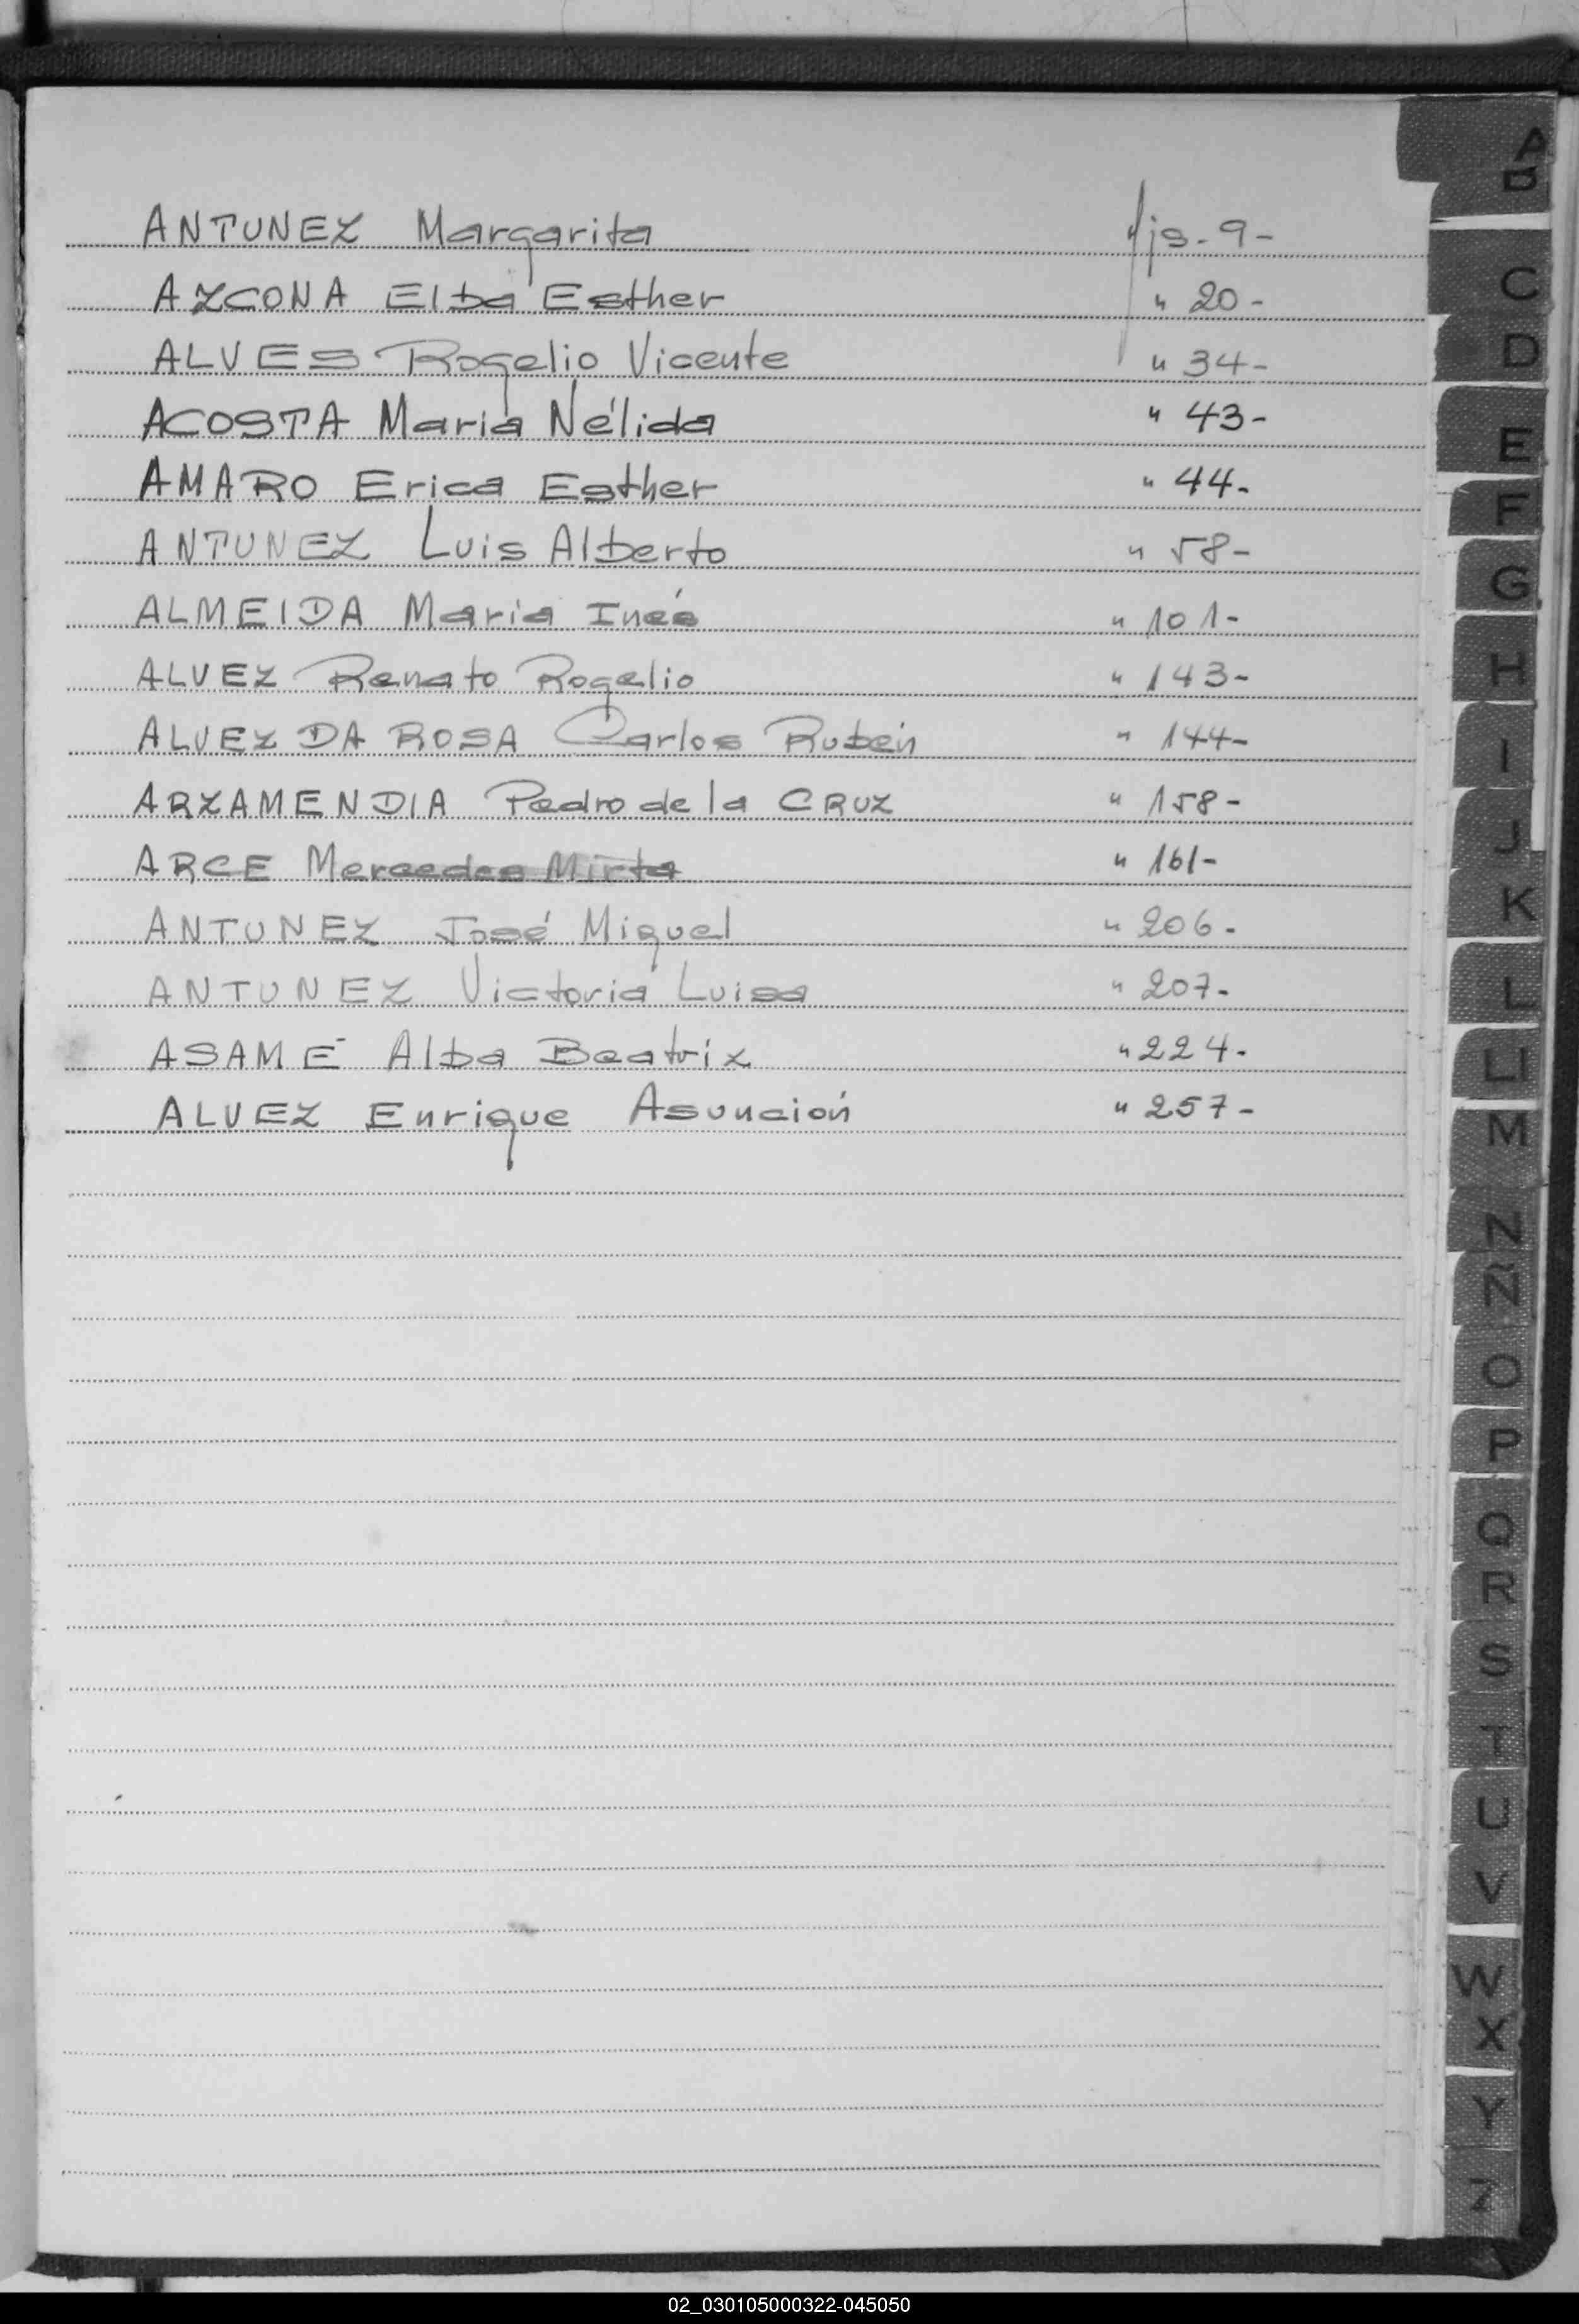 ANTUNEZ Margarita fjs. 9-
AZCONA Elba Esther " 20-
ALVES Rogelio Vicente " 34-
ACOSTA Maria Nélida " 43-
AMARO Erica Esther " 44-
ANTUNEZ Luis Alberto " 58-
ALMEIDA Maria Inés " 101-
ALVEZ Renato Rogelio " 143-
ALVEZ DA ROSA Carlos Rubén " 144-
ARZAMENDIA Pedro de la CRUZ " 158-
ARCE Mercedes Mirta " 161-
ANTUNEZ José Miguel " 206-
ANTUNEZ Victoria Luisa " 207-
ASAMÉ Alba Beatriz " 224-
ALVEZ Enrique Asunción " 257-
A
B
C
D
E
F
G
H
I
J
K
L
LL
M
N
Ñ
O
P
Q
R
S
T
U
V
W
X
Y
Z
02_030105000322-045050